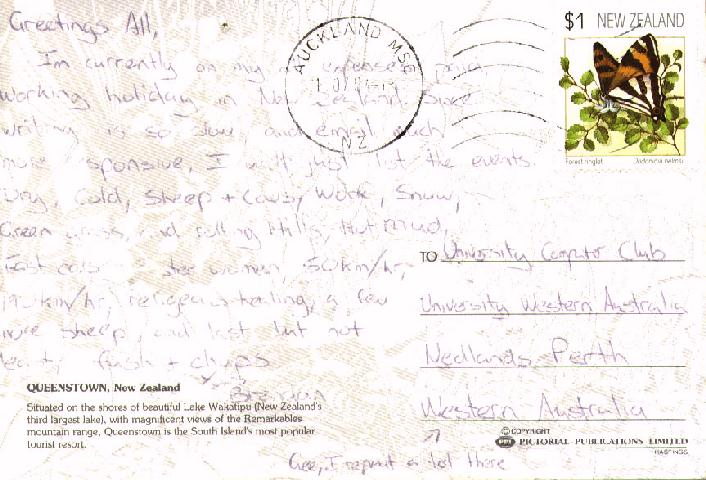 Greetings All,
I'm currently on my expense paid
working holiday in New Zealand. Since
writing is so slow, and email much
more responsive, I will just list the events.
Dry, Cold, Sheep + Cows, Work, Snow,
Green grass, and rolling Hills, Hot Mud,
Fast women, 50km/hr,
190km/hr, religious healing, a few
more sheep, and last but not
least Fush + chups
AUCKLAND MS
NZ
$1 NEW ZEALAND
Forest ringlet
TO University Computer Club
University Western Australia
Nedlands Perth
Western Australia
Gee, I repeat a lot there
QUEENSTOWN, New Zealand
Situated on the shores of beautiful Lake Wakatipu (New Zealand's
third largest lake), with magnificent views of the Remarkables
mountain range, Queenstown is the South Island's most popular
tourist resort.
© COPYRIGHT
PPL PICTORIAL PUBLICATIONS LIMITED
HASTINGS